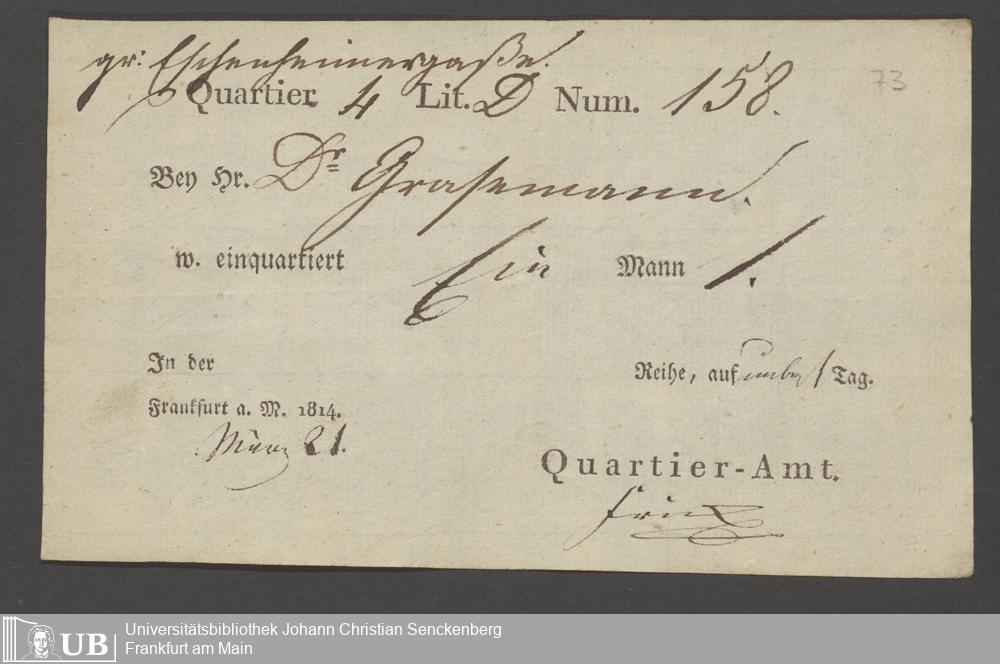 gr: Eschenheimergaße.
73
Quartier 4 Lit. D Num. 158.
Bey Hr. Dr Grasemann.
w. einquartiert Ein Mann 1.
In der Reihe, auf unbest Tag.
Frankfurt a. M. 1814.
März 21.
Quartier-Amt.
UB Universitätsbibliothek Johann Christian Senckenberg
Frankfurt am Main